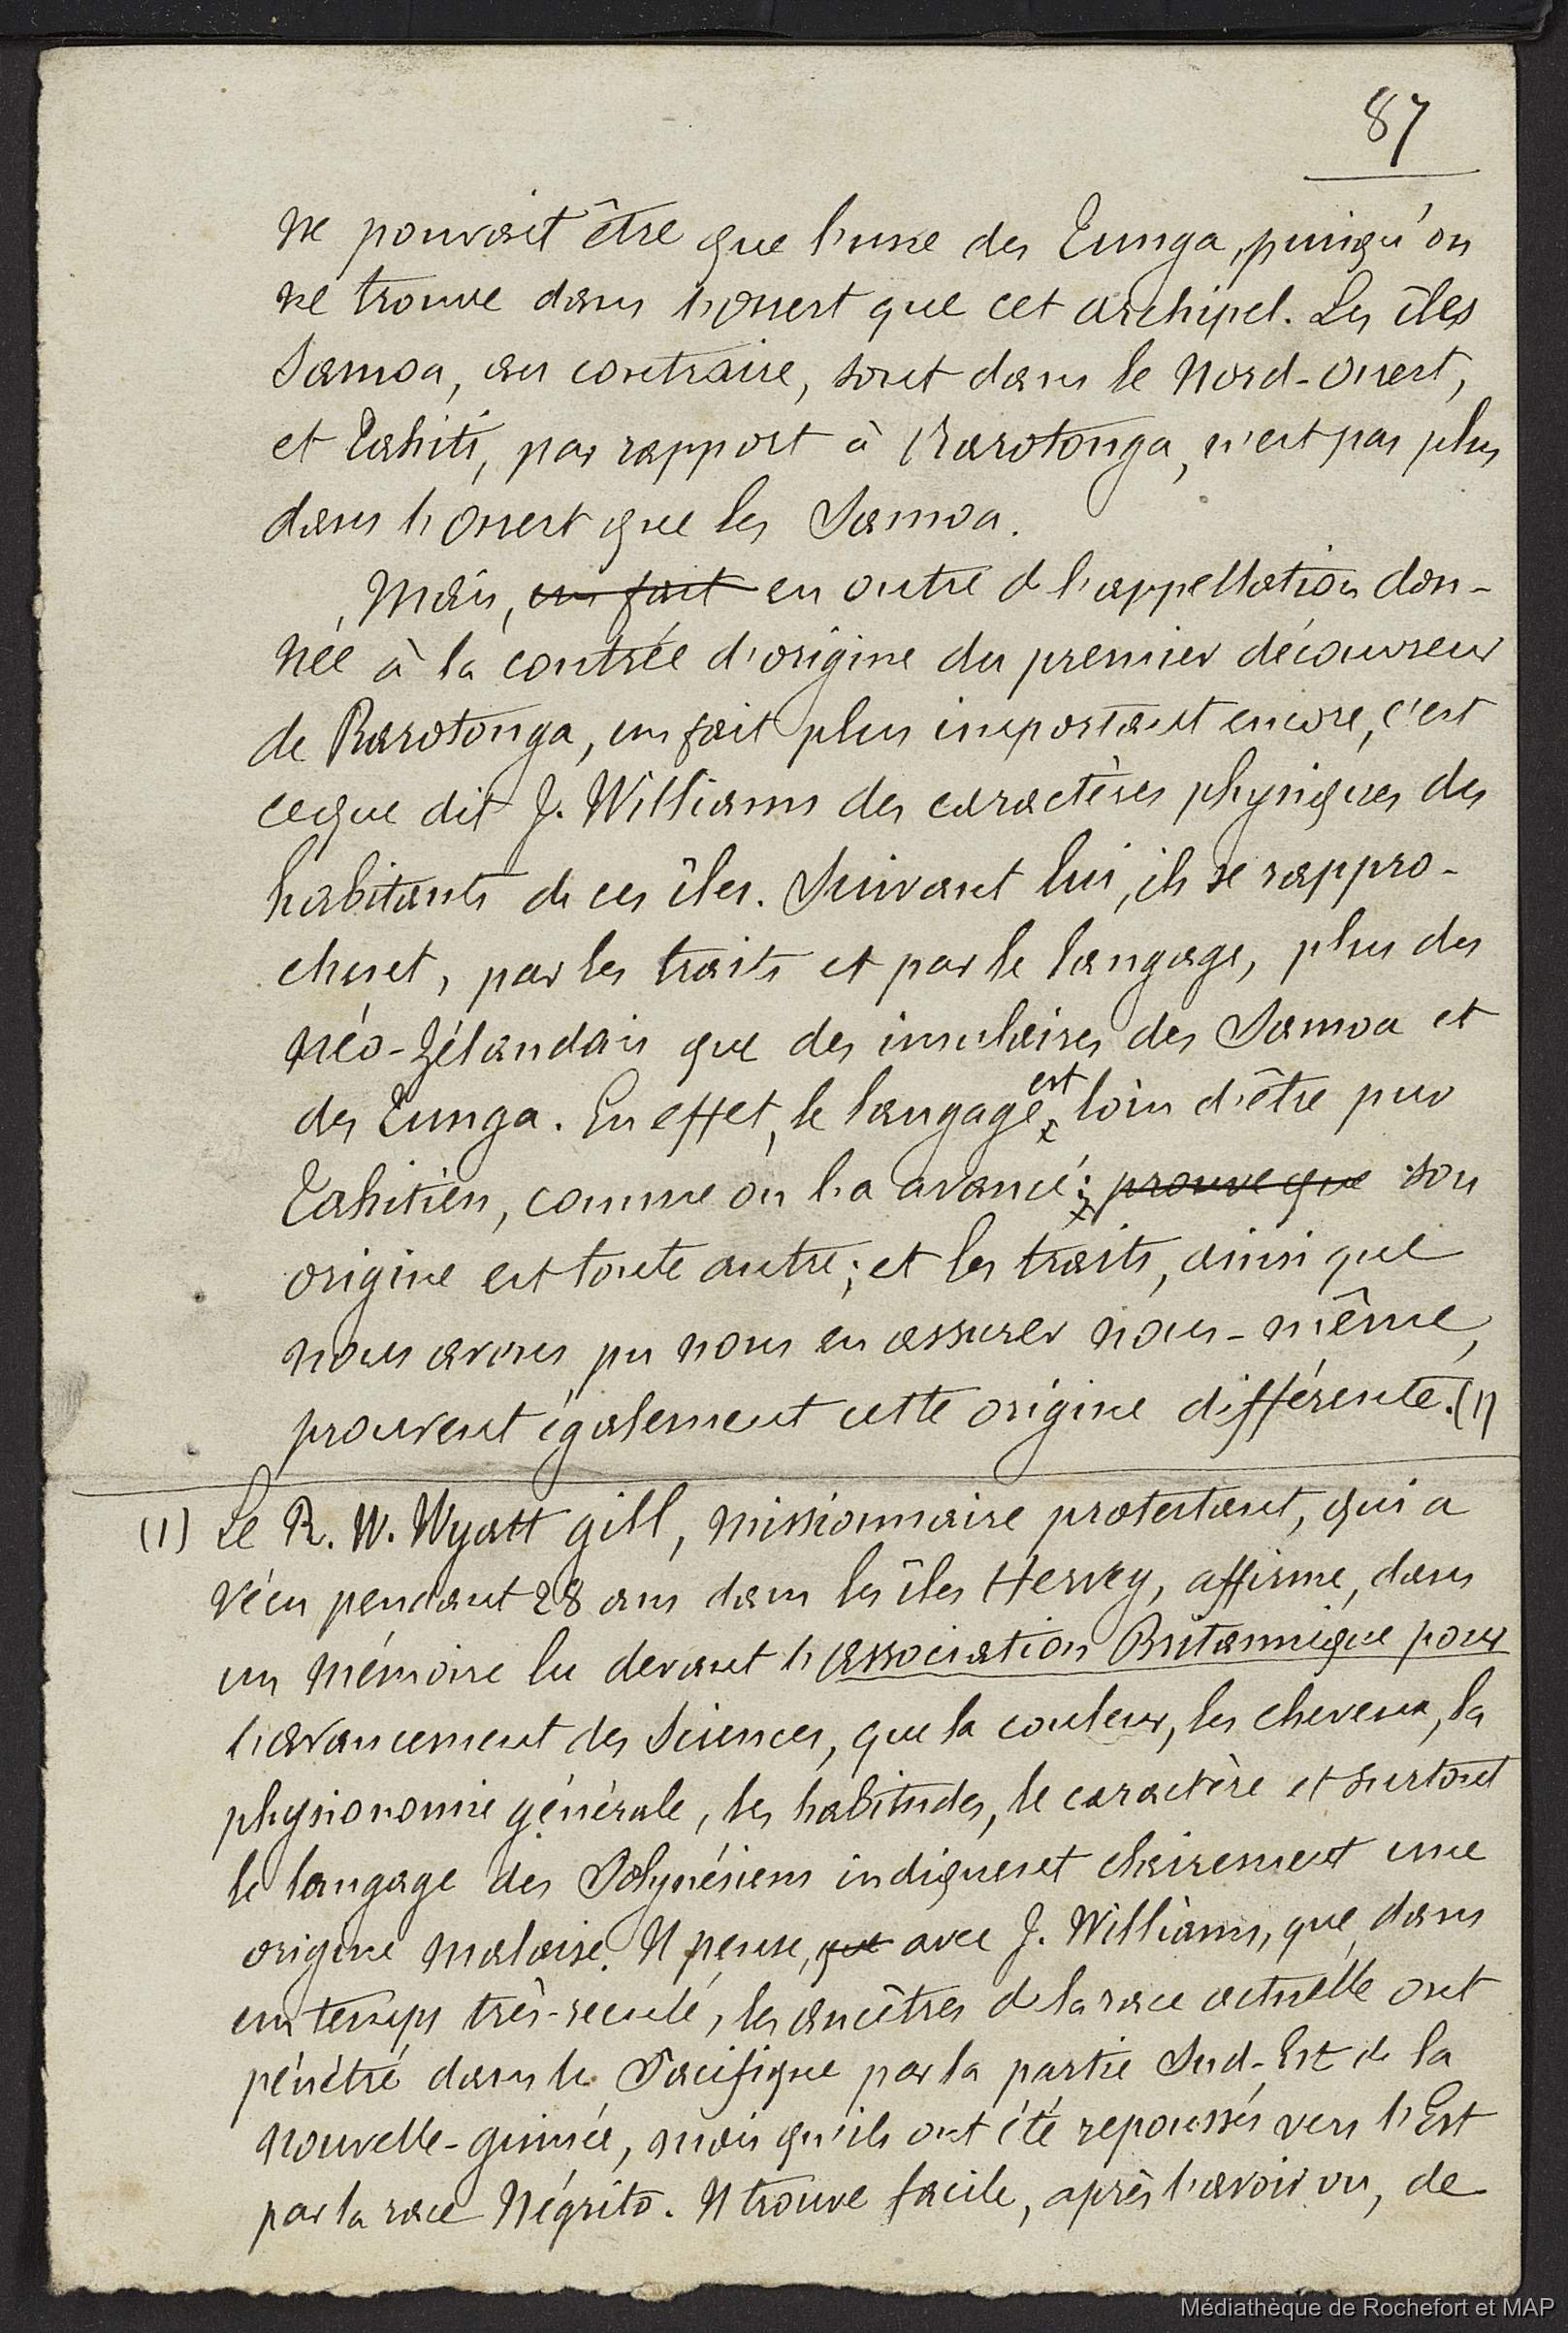 87
ne pouvait être que l'une des Tunga, puisqu'on
ne trouve dans l'Ouest que cet archipel. Les îles
Samoa, au contraire, sont dans le Nord-Ouest,
et Tahiti, par rapport à Rarotonga, n'est pas plus
dans l'Ouest que les Samoa.
Mais, un fait en outre de l'appellation don-
née à la contrée d'origine du premier découvreur
de Rarotonga, un fait plus important encore, c'est
ce que dit J. Williams des caractères physiques des
habitants de ces îles. Suivant lui, ils se rappro-
chent, par les traits et par le langage, plus des
Néo-Zélandais que des insulaires des Samoa et
des Tunga. En effet, le langage est loin d'être pur
Tahitien, comme on l'a avancé ; prouve que son
origine est toute autre ; et les traits, ainsi que
nous avons pu nous en assurer nous-même,
prouvent également cette origine différente. (1)
(1) Le R. W. Wyatt Gill, missionnaire protestant, qui a
vécu pendant 28 ans dans les îles Hervey, affirme, dans
un mémoire lu devant l'Association Britannique pour
l'avancement des Sciences, que la couleur, les cheveux, la
physionomie générale, les habitudes, le caractère et surtout
le langage des Polynésiens indiquent clairement une
origine malaise. Il pense, que avec J. Williams, que, dans
un temps très-reculé, les ancêtres de la race actuelle ont
pénétré dans le Pacifique par la partie Sud-Est de la
Nouvelle-Guinée, mais qu'ils ont été repoussés vers l'Est
par la race Négrito. Il trouve facile, après l'avoir vu, de
Médiathèque de Rochefort et MAP